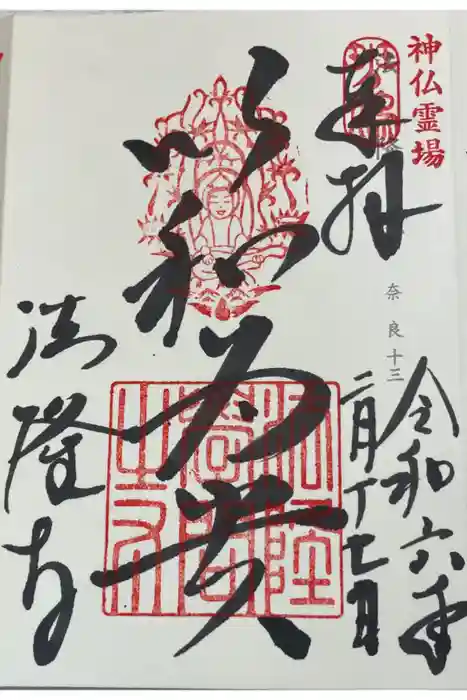 神仏霊場
奉拝
奈良十三
令和六年
二月十七日
以和為貴
法隆寺